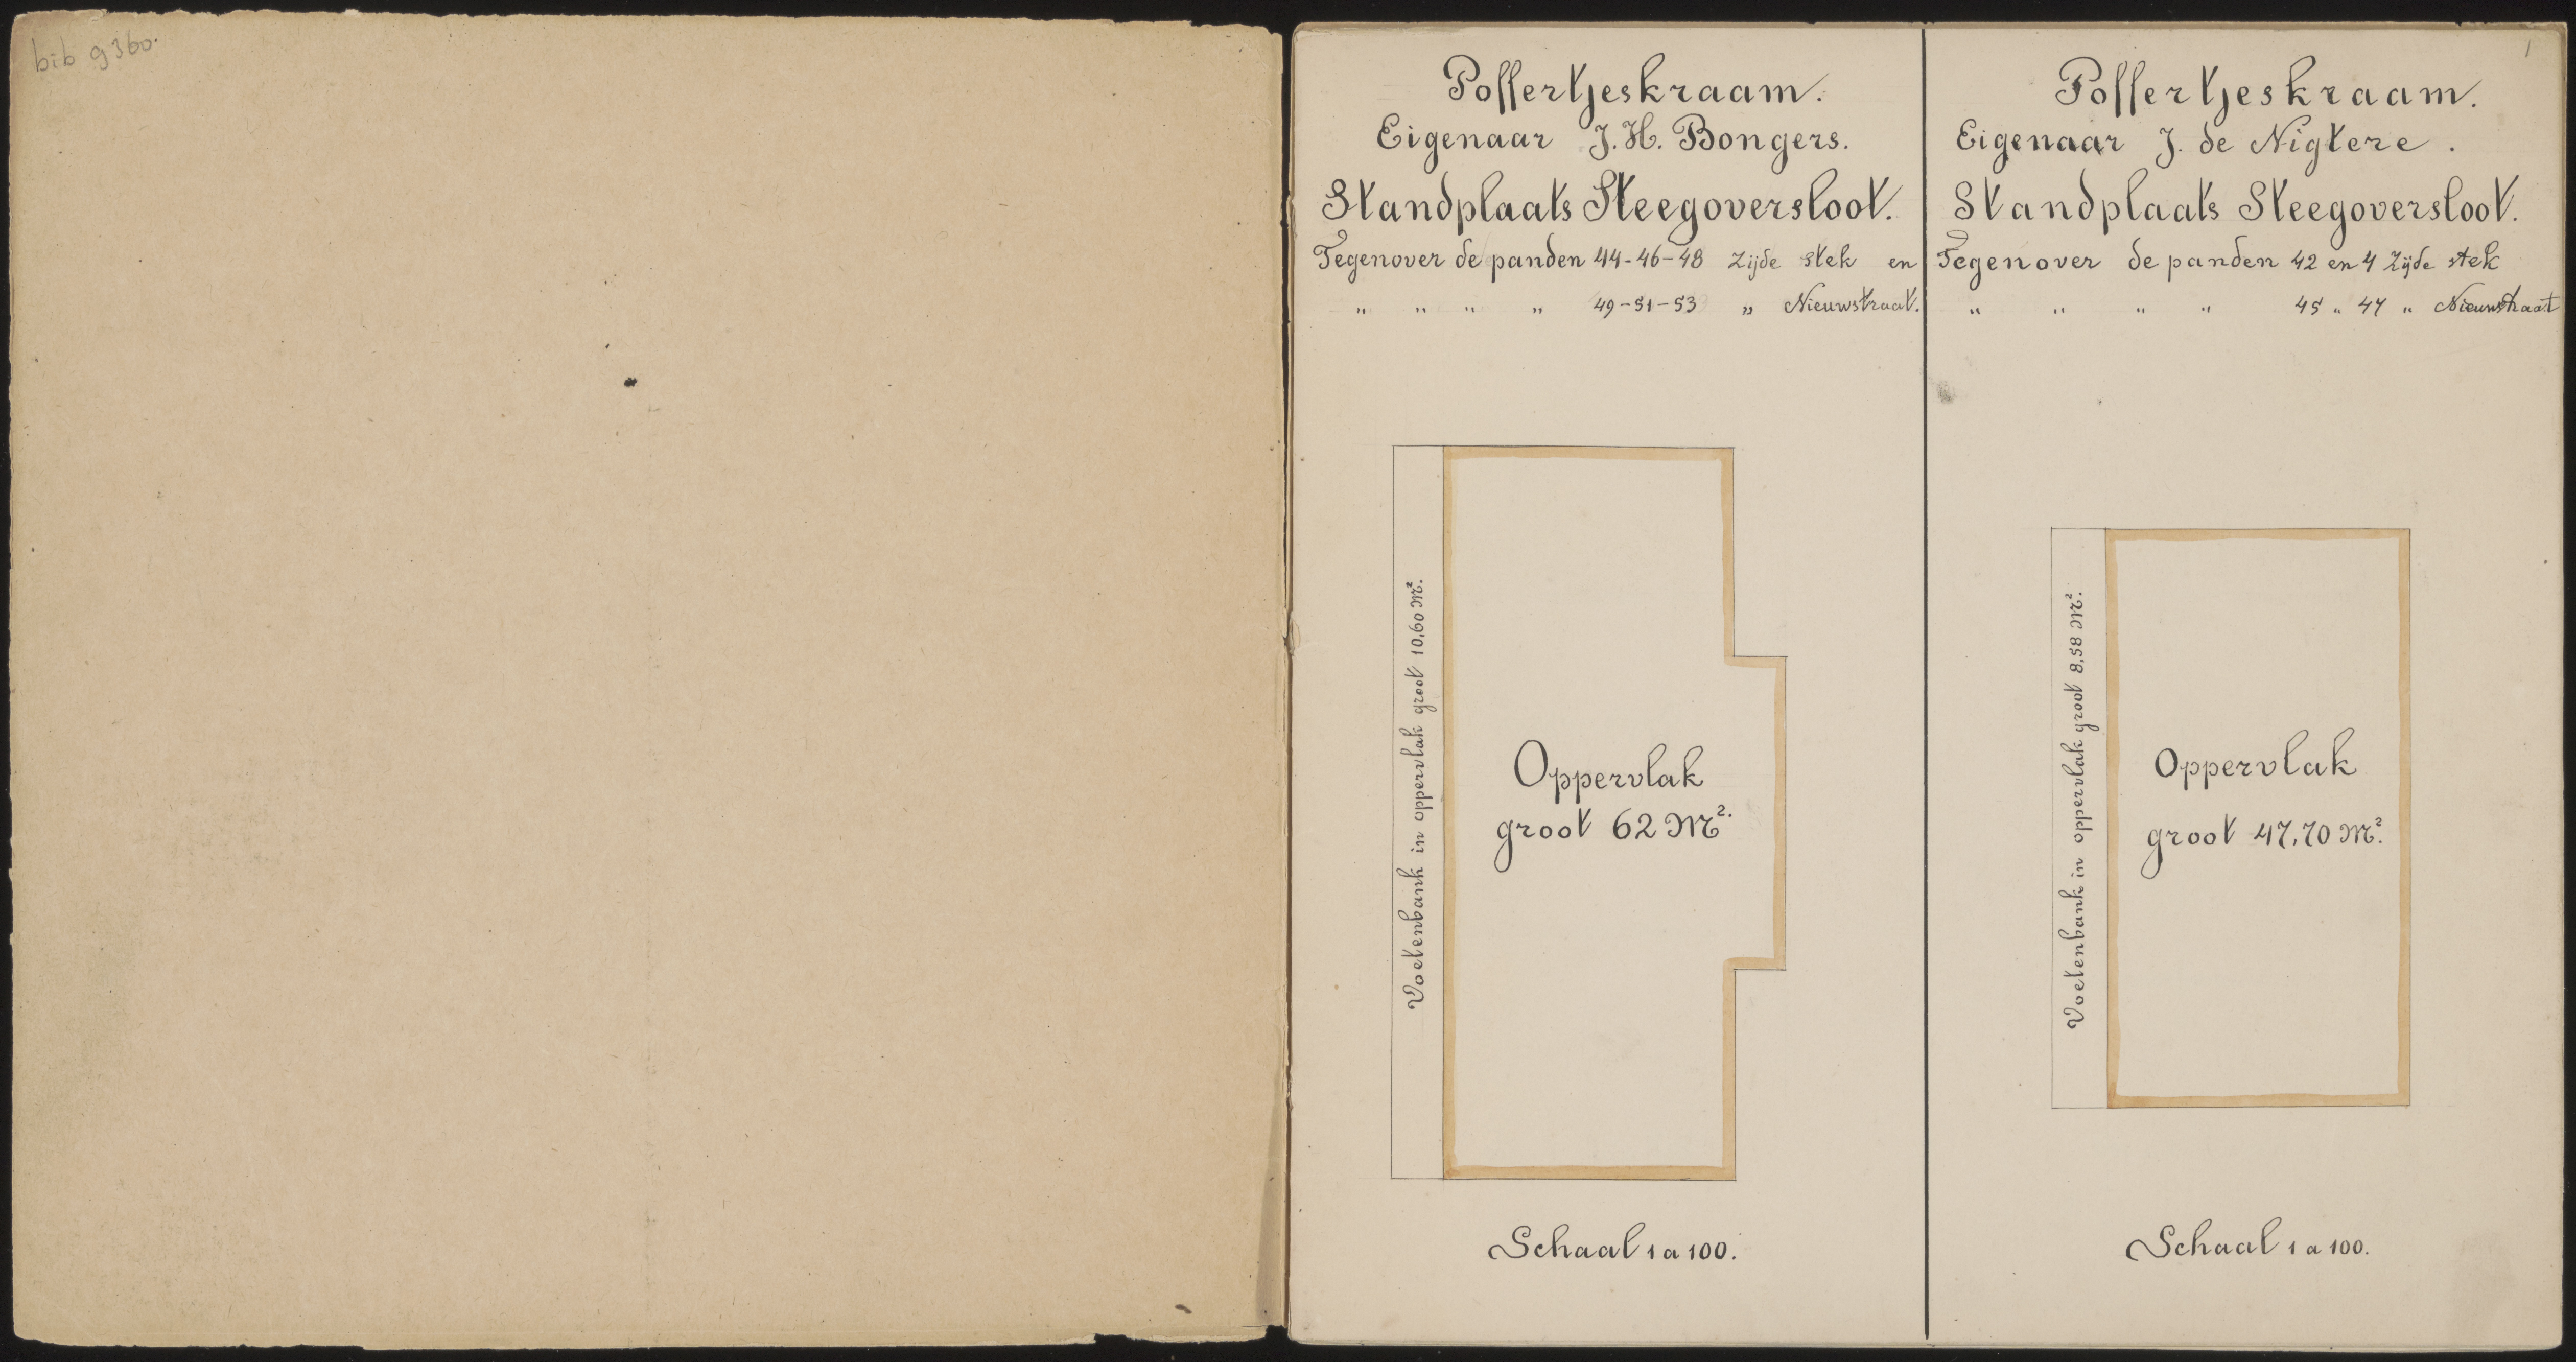 bib 9360.
1
Poffertjeskraam.
Eigenaar J. H. Bongers.
Standplaats Steegoversloot.
Tegenover de panden 44-46-48 zijde stek en
" " " " 49-51-53 " Nieuwstraat.
Voetenbank in oppervlak groot 10,60 M².
Oppervlak
groot 62 M².
Schaal 1 a 100.
Poffertjeskraam.
Eigenaar J. de Nigtere.
Standplaats Steegoversloot.
Tegenover de panden 42 en 4 zijde stek
" " " " 45 " 47 " Nieuwstraat
Voetenbank in oppervlak groot 8,58 M².
Oppervlak
groot 47,70 M².
Schaal 1 a 100.